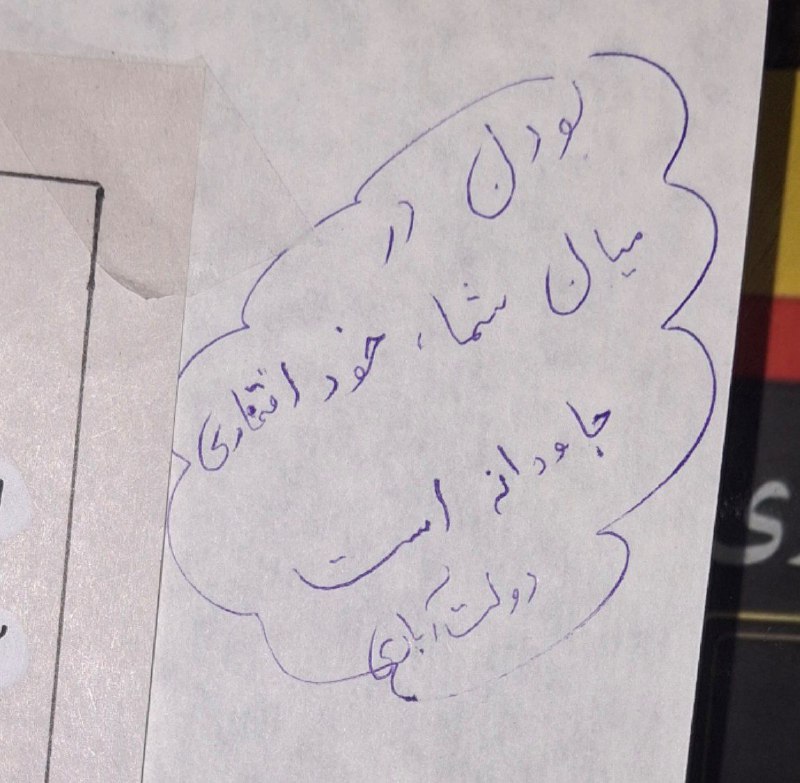 بودن در
میان شما، خود افتخاری
جاودانه است
دولت آبادی